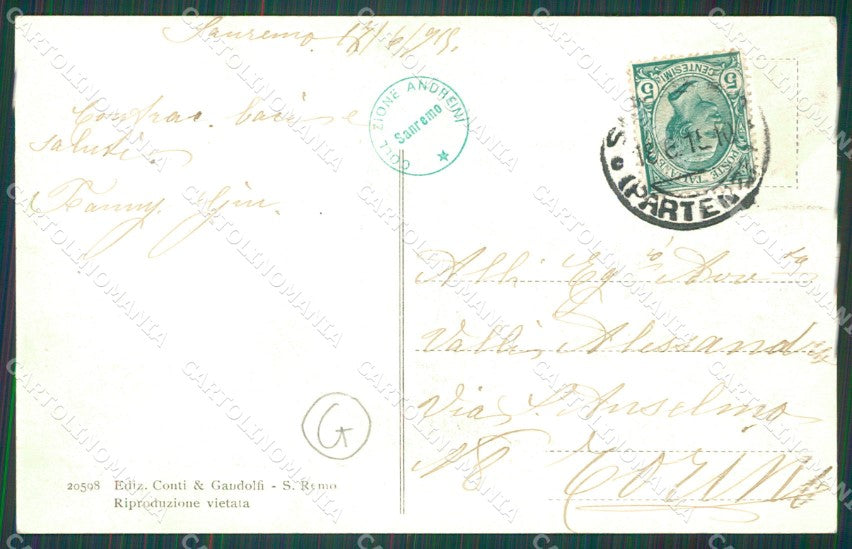 Sanremo. 17/6/915.
Contrac. baci e
saluti.
Fanny Gin.
COLLEZIONE ANDREINI
Sanremo
5 CENTESIMI 5
POSTE ITALIANE
(PARTENZA)
All' Eg.º Avv.
Valli Alessand
Via S. Anselmo
N 8 TORINO
G
20598 Ediz. Conti & Gandolfi - S. Remo
Riproduzione vietata
CARTOLINOMANIA